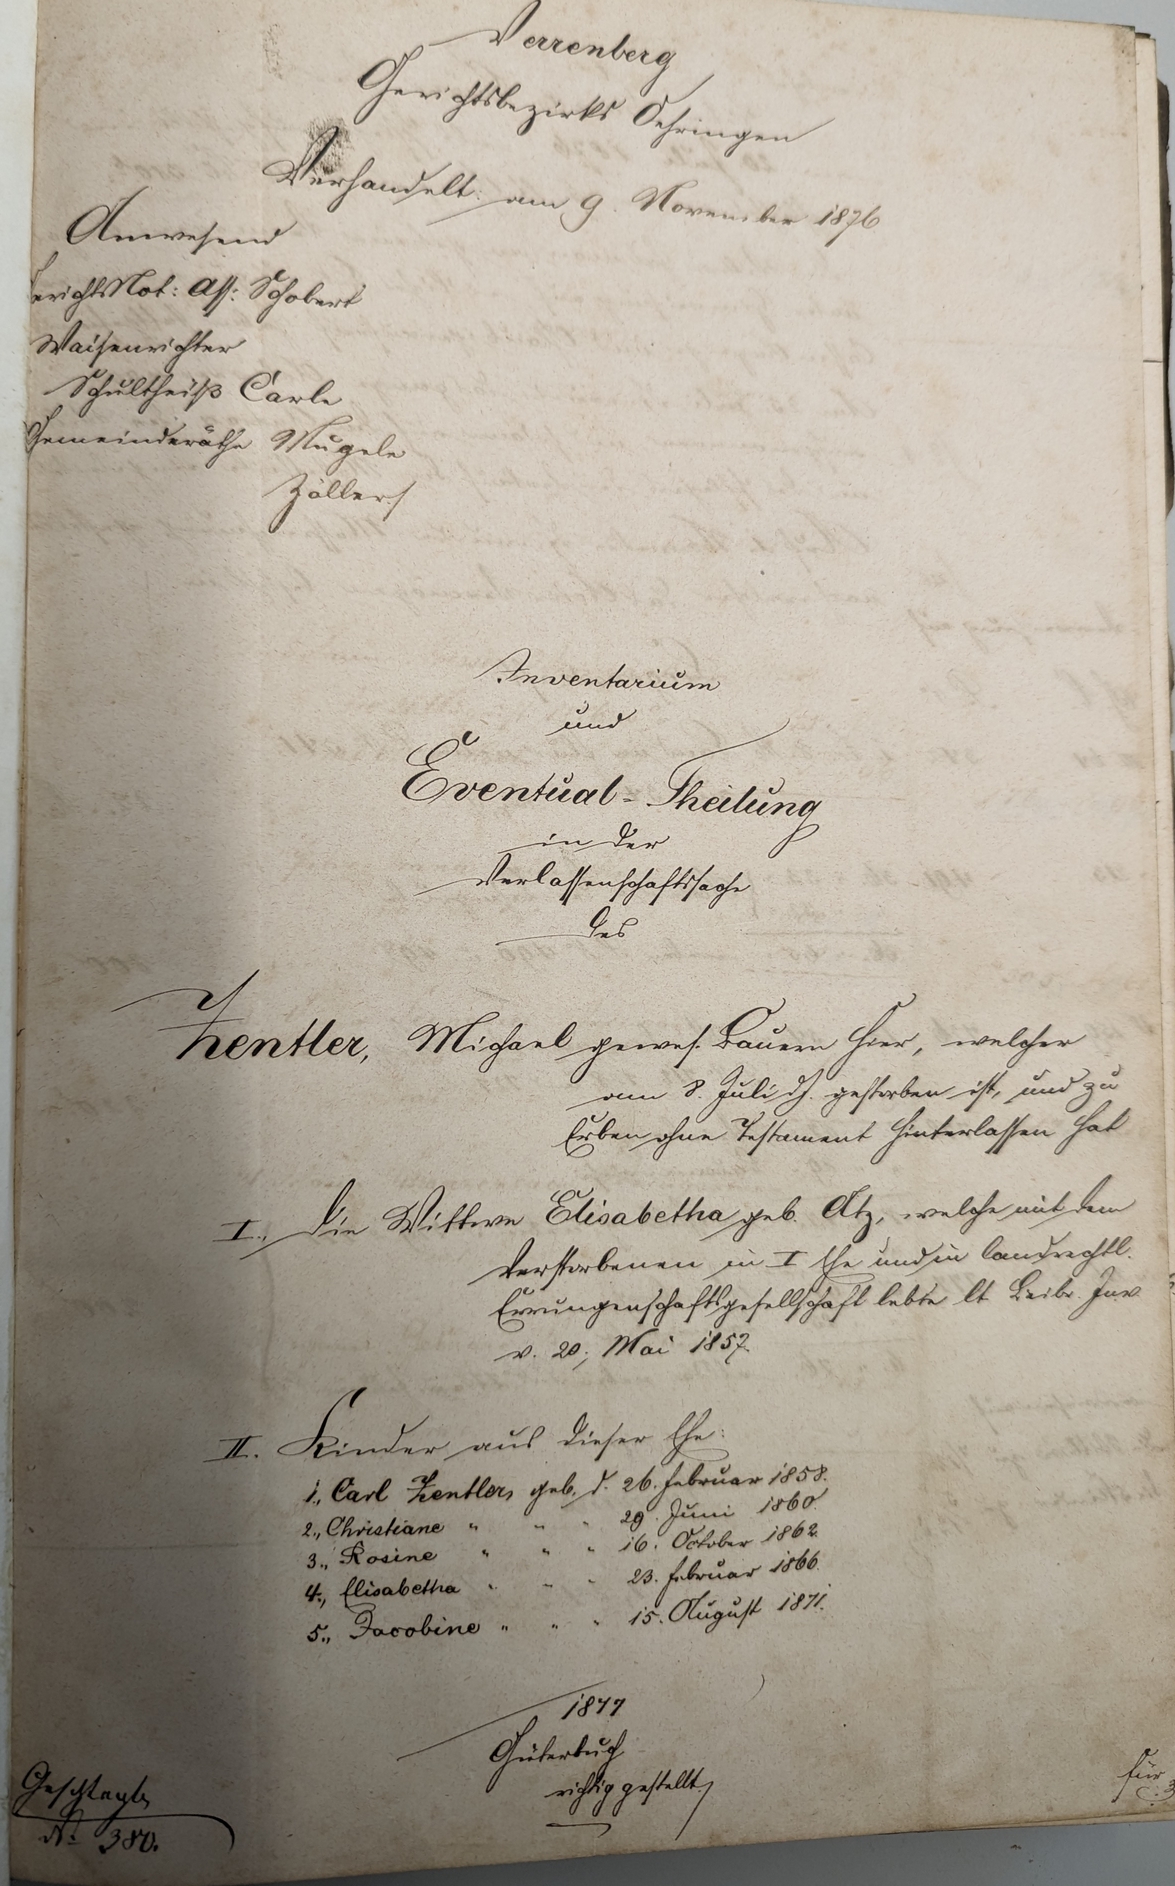 Verrenberg
Gerichtsbezirks Oehringen
Verhandelt am 9. November 1876
Anwesend
GerichtsNot: Ass: Schobert
Waisenrichter
Schultheiß Carle
Gemeinderäthe Mugele
Zöller
Inventarium
und
Eventual-Theilung
in der
Verlassenschaftssache
des
Zentler, Michael gewes. Bauern hier, welcher
am 8. Juli d. J. gestorben ist, und zu
Erben ohne Testament hinterlassen hat
I., Die Wittwe Elisabetha geb. Atz, welche mit dem
Verstorbenen in I Ehe und in landrechtl.
Errungenschaftsgesellschaft lebte lt. Beibr. Inv.
v. 20. Mai 1857.
II. Kinder aus dieser Ehe:
1., Carl Zentler, geb. d. 26. Februar 1858.
2., Christiane " " " 29. Juni 1860.
3., Rosine " " " 16. October 1862.
4., Elisabetha " " " 23. Februar 1866.
5., Jacobine " " " 15. August 1871.
1877
Güterbuch
richtig gestellt
No 380.
für